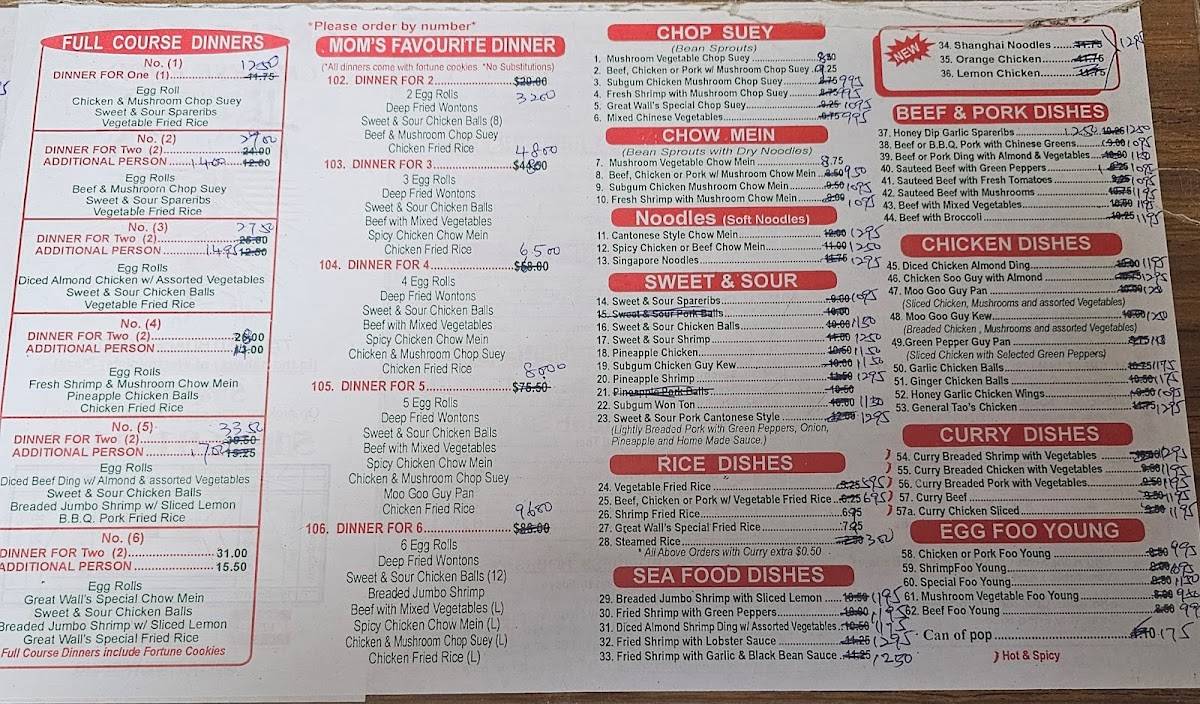 FULL COURSE DINNERS
No. (1) 1250
DINNER FOR One (1) 11.75
Egg Roll
Chicken & Mushroom Chop Suey
Sweet & Sour Spareribs
Vegetable Fried Rice
No. (2) 2900
DINNER FOR Two (2) 24.00
ADDITIONAL PERSON 1400 12.00
Egg Rolls
Beef & Mushroom Chop Suey
Sweet & Sour Spareribs
Vegetable Fried Rice
No. (3) 2750
DINNER FOR Two (2)
ADDITIONAL PERSON 1495 12.00
Egg Rolls
Diced Almond Chicken w/ Assorted Vegetables
Sweet & Sour Chicken Balls
Vegetable Fried Rice
No. (4)
DINNER FOR Two (2)
ADDITIONAL PERSON
Egg Rolls
Fresh Shrimp & Mushroom Chow Mein
Pineapple Chicken Balls
Chicken Fried Rice
No. (5) 3350
DINNER FOR Two (2) 30.50
ADDITIONAL PERSON 1700 15.25
Egg Rolls
Diced Beef Ding w/ Almond & assorted Vegetables
Sweet & Sour Chicken Balls
Breaded Jumbo Shrimp w/ Sliced Lemon
B.B.Q. Pork Fried Rice
No. (6)
DINNER FOR Two (2) 31.00
ADDITIONAL PERSON 15.50
Egg Rolls
Great Wall's Special Chow Mein
Sweet & Sour Chicken Balls
Breaded Jumbo Shrimp w/ Sliced Lemon
Great Wall's Special Fried Rice
Full Course Dinners include Fortune Cookies
*Please order by number*
MOM'S FAVOURITE DINNER
(*All dinners come with fortune cookies. *No Substitutions)
102. DINNER FOR 2 $29.00
2 Egg Rolls 3200
Deep Fried Wontons
Sweet & Sour Chicken Balls (8)
Beef & Mushroom Chop Suey
Chicken Fried Rice 4800
103. DINNER FOR 3
3 Egg Rolls
Deep Fried Wontons
Sweet & Sour Chicken Balls
Beef with Mixed Vegetables
Spicy Chicken Chow Mein
Chicken Fried Rice 6500
104. DINNER FOR 4
4 Egg Rolls
Deep Fried Wontons
Sweet & Sour Chicken Balls
Beef with Mixed Vegetables
Spicy Chicken Chow Mein
Chicken & Mushroom Chop Suey
Chicken Fried Rice 8000
105. DINNER FOR 5 $75.50
5 Egg Rolls
Deep Fried Wontons
Sweet & Sour Chicken Balls
Beef with Mixed Vegetables
Spicy Chicken Chow Mein
Chicken & Mushroom Chop Suey
Moo Goo Guy Pan
Chicken Fried Rice 9600
106. DINNER FOR 6
6 Egg Rolls
Deep Fried Wontons
Sweet & Sour Chicken Balls (12)
Breaded Jumbo Shrimp
Beef with Mixed Vegetables (L)
Spicy Chicken Chow Mein (L)
Chicken & Mushroom Chop Suey (L)
Chicken Fried Rice (L)
CHOP SUEY
(Bean Sprouts)
1. Mushroom Vegetable Chop Suey
2. Beef, Chicken or Pork w/ Mushroom Chop Suey
3. Subgum Chicken Mushroom Chop Suey 8.75 995
4. Fresh Shrimp with Mushroom Chop Suey 8.75 995
5. Great Wall's Special Chop Suey 9.25 1095
6. Mixed Chinese Vegetables 995
CHOW MEIN
(Bean Sprouts with Dry Noodles)
7. Mushroom Vegetable Chow Mein 8.75
8. Beef, Chicken or Pork w/ Mushroom Chow Mein 8.50 995
9. Subgum Chicken Mushroom Chow Mein 9.50 1095
10. Fresh Shrimp with Mushroom Chow Mein 1095
Noodles (Soft Noodles)
11. Cantonese Style Chow Mein 12.00 1295
12. Spicy Chicken or Beef Chow Mein 11.00 1250
13. Singapore Noodles 11.75 1295
SWEET & SOUR
14. Sweet & Sour Spareribs 9.00 1095
15. Sweet & Sour Pork Balls 10.00
16. Sweet & Sour Chicken Balls 10.00 1150
17. Sweet & Sour Shrimp 1250
18. Pineapple Chicken 10.50 1150
19. Subgum Chicken Guy Kew 10.00 1150
20. Pineapple Shrimp 1295
21. Pineapple Pork Balls 10.50
22. Subgum Won Ton 10.00 1150
23. Sweet & Sour Pork Cantonese Style 1295
(Lightly Breaded Pork with Green Peppers, Onion,
Pineapple and Home Made Sauce.)
RICE DISHES
24. Vegetable Fried Rice 5.25 595
25. Beef, Chicken or Pork w/ Vegetable Fried Rice 6.25 695
26. Shrimp Fried Rice
27. Great Wall's Special Fried Rice
28. Steamed Rice 300
* All Above Orders with Curry extra $0.50
SEA FOOD DISHES
29. Breaded Jumbo Shrimp with Sliced Lemon 10.50 1195
30. Fried Shrimp with Green Peppers 10.00 1195
31. Diced Almond Shrimp Ding w/ Assorted Vegetables 10.50 1175
32. Fried Shrimp with Lobster Sauce 11.25 1295
33. Fried Shrimp with Garlic & Black Bean Sauce 11.25 1250
NEW
34. Shanghai Noodles 11.75 1295
35. Orange Chicken 11.75
36. Lemon Chicken 11.75
BEEF & PORK DISHES
37. Honey Dip Garlic Spareribs 10.25 1250
38. Beef or B.B.Q. Pork with Chinese Greens 9.00 1095
39. Beef or Pork Ding with Almond & Vegetables 10.00 1150
40. Sauteed Beef with Green Peppers 1095
41. Sauteed Beef with Fresh Tomatoes 9.25 1095
42. Sauteed Beef with Mushrooms 10.75 1195
43. Beef with Mixed Vegetables 1195
44. Beef with Broccoli 10.25 1195
CHICKEN DISHES
45. Diced Chicken Almond Ding 1195
46. Chicken Soo Guy with Almond 1295
47. Moo Goo Guy Pan
(Sliced Chicken, Mushrooms and assorted Vegetables)
48. Moo Goo Guy Kew 1250
(Breaded Chicken, Mushrooms and assorted Vegetables)
49. Green Pepper Guy Pan 9.75
(Sliced Chicken with Selected Green Peppers)
50. Garlic Chicken Balls 10.25 1195
51. Ginger Chicken Balls 10.50 1175
52. Honey Garlic Chicken Wings 10.50 1095
53. General Tao's Chicken 11.75 1295
CURRY DISHES
54. Curry Breaded Shrimp with Vegetables 1295
55. Curry Breaded Chicken with Vegetables 1195
56. Curry Breaded Pork with Vegetables 9.50 1195
57. Curry Beef 1195
57a. Curry Chicken Sliced 1195
EGG FOO YOUNG
58. Chicken or Pork Foo Young 995
59. ShrimpFoo Young 1095
60. Special Foo Young 1150
61. Mushroom Vegetable Foo Young
62. Beef Foo Young
Can of pop 175
Hot & Spicy